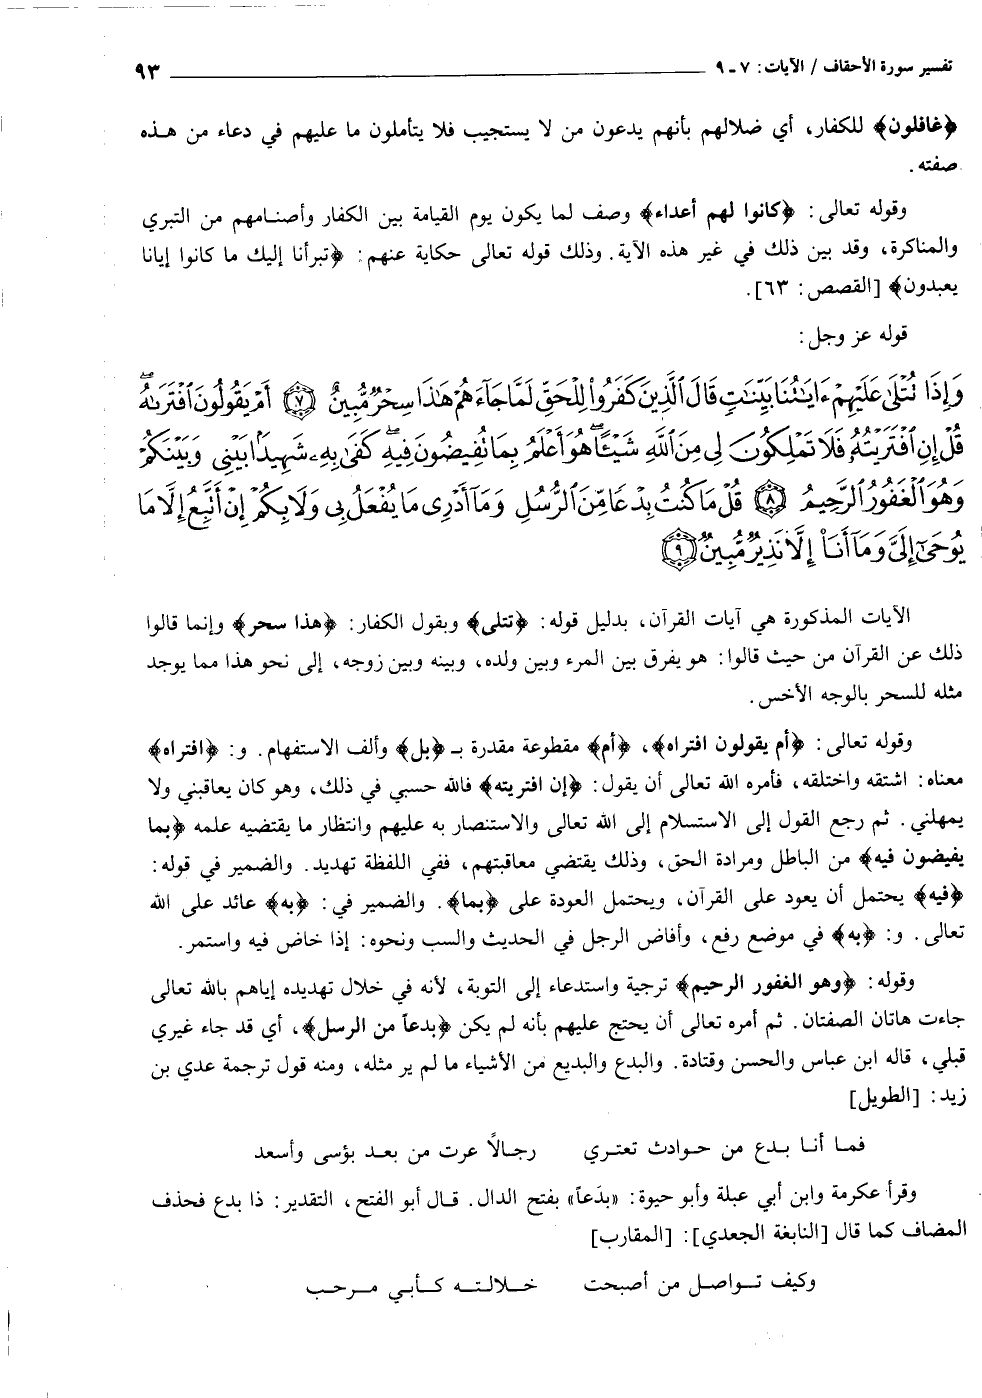 تفسير سورة الأحقاف / الآيات: ٧ ـ ٩ ٩٣
﴿غافلون﴾ للكفار، أي ضلالهم بأنهم يدعون من لا يستجيب فلا يتأملون ما عليهم في دعاء من هذه
صفته.
وقوله تعالى: ﴿كانوا لهم أعداء﴾ وصف لما يكون يوم القيامة بين الكفار وأصنامهم من التبري
والمناكرة، وقد بين ذلك في غير هذه الآية. وذلك قوله تعالى حكاية عنهم: ﴿تبرأنا إليك ما كانوا إيانا
يعبدون﴾ [القصص: ٦٣].
قوله عز وجل:
وَإِذَا تُتْلَىٰ عَلَيْهِمْ ءَايَٰتُنَا بَيِّنَٰتٍ قَالَ ٱلَّذِينَ كَفَرُواْ لِلْحَقِّ لَمَّا جَآءَهُمْ هَٰذَا سِحْرٌ مُّبِينٌ ٧ أَمْ يَقُولُونَ ٱفْتَرَىٰهُۖ
قُلْ إِنِ ٱفْتَرَيْتُهُۥ فَلَا تَمْلِكُونَ لِي مِنَ ٱللَّهِ شَيْـًٔاۖ هُوَ أَعْلَمُ بِمَا تُفِيضُونَ فِيهِۖ كَفَىٰ بِهِۦ شَهِيدًۢا بَيْنِي وَبَيْنَكُمْ
وَهُوَ ٱلْغَفُورُ ٱلرَّحِيمُ ٨ قُلْ مَا كُنتُ بِدْعًا مِّنَ ٱلرُّسُلِ وَمَآ أَدْرِي مَا يُفْعَلُ بِي وَلَا بِكُمْ إِنْ أَتَّبِعُ إِلَّا مَا
يُوحَىٰٓ إِلَيَّ وَمَآ أَنَا۠ إِلَّا نَذِيرٌ مُّبِينٌ ٩
الآيات المذكورة هي آيات القرآن، بدليل قوله: ﴿تتلى﴾ وبقول الكفار: ﴿هذا سحر﴾ وإنما قالوا
ذلك عن القرآن من حيث قالوا: هو يفرق بين المرء وبين ولده، وبينه وبين زوجه، إلى نحو هذا مما يوجد
مثله للسحر بالوجه الأخس.
وقوله تعالى: ﴿أم يقولون افتراه﴾، ﴿أم﴾ مقطوعة مقدرة بـ ﴿بل﴾ وألف الاستفهام. و: ﴿افتراه﴾
معناه: اشتقه واختلقه، فأمره الله تعالى أن يقول: ﴿إن افتريته﴾ فالله حسبي في ذلك، وهو كان يعاقبني ولا
يمهلني. ثم رجع القول إلى الاستسلام إلى الله تعالى والاستنصار به عليهم وانتظار ما يقتضيه علمه ﴿بما
يفيضون فيه﴾ من الباطل ومرادة الحق، وذلك يقتضي معاقبتهم، ففي اللفظة تهديد. والضمير في قوله:
﴿فيه﴾ يحتمل أن يعود على القرآن، ويحتمل العودة على ﴿بما﴾. والضمير في: ﴿به﴾ عائد على الله
تعالى. و: ﴿به﴾ في موضع رفع، وأفاض الرجل في الحديث والسب ونحوه: إذا خاض فيه واستمر.
وقوله: ﴿وهو الغفور الرحيم﴾ ترجية واستدعاء إلى التوبة، لأنه في خلال تهديده إياهم بالله تعالى
جاءت هاتان الصفتان. ثم أمره تعالى أن يحتج عليهم بأنه لم يكن ﴿بدعاً من الرسل﴾، أي قد جاء غيري
قبلي، قاله ابن عباس والحسن وقتادة. والبدع والبديع من الأشياء ما لم ير مثله، ومنه قول ترجمة عدي بن
زيد: [الطويل]
فما أنا بدع من حوادث تعتري رجالاً عرت من بعد بؤسى وأسعد
وقرأ عكرمة وابن أبي عبلة وأبو حيوة: «بدَعاً» بفتح الدال. قال أبو الفتح، التقدير: ذا بدع فحذف
المضاف كما قال [النابغة الجعدي]: [المقارب]
وكيف تواصل من أصبحت خلالته كأبي مرحب